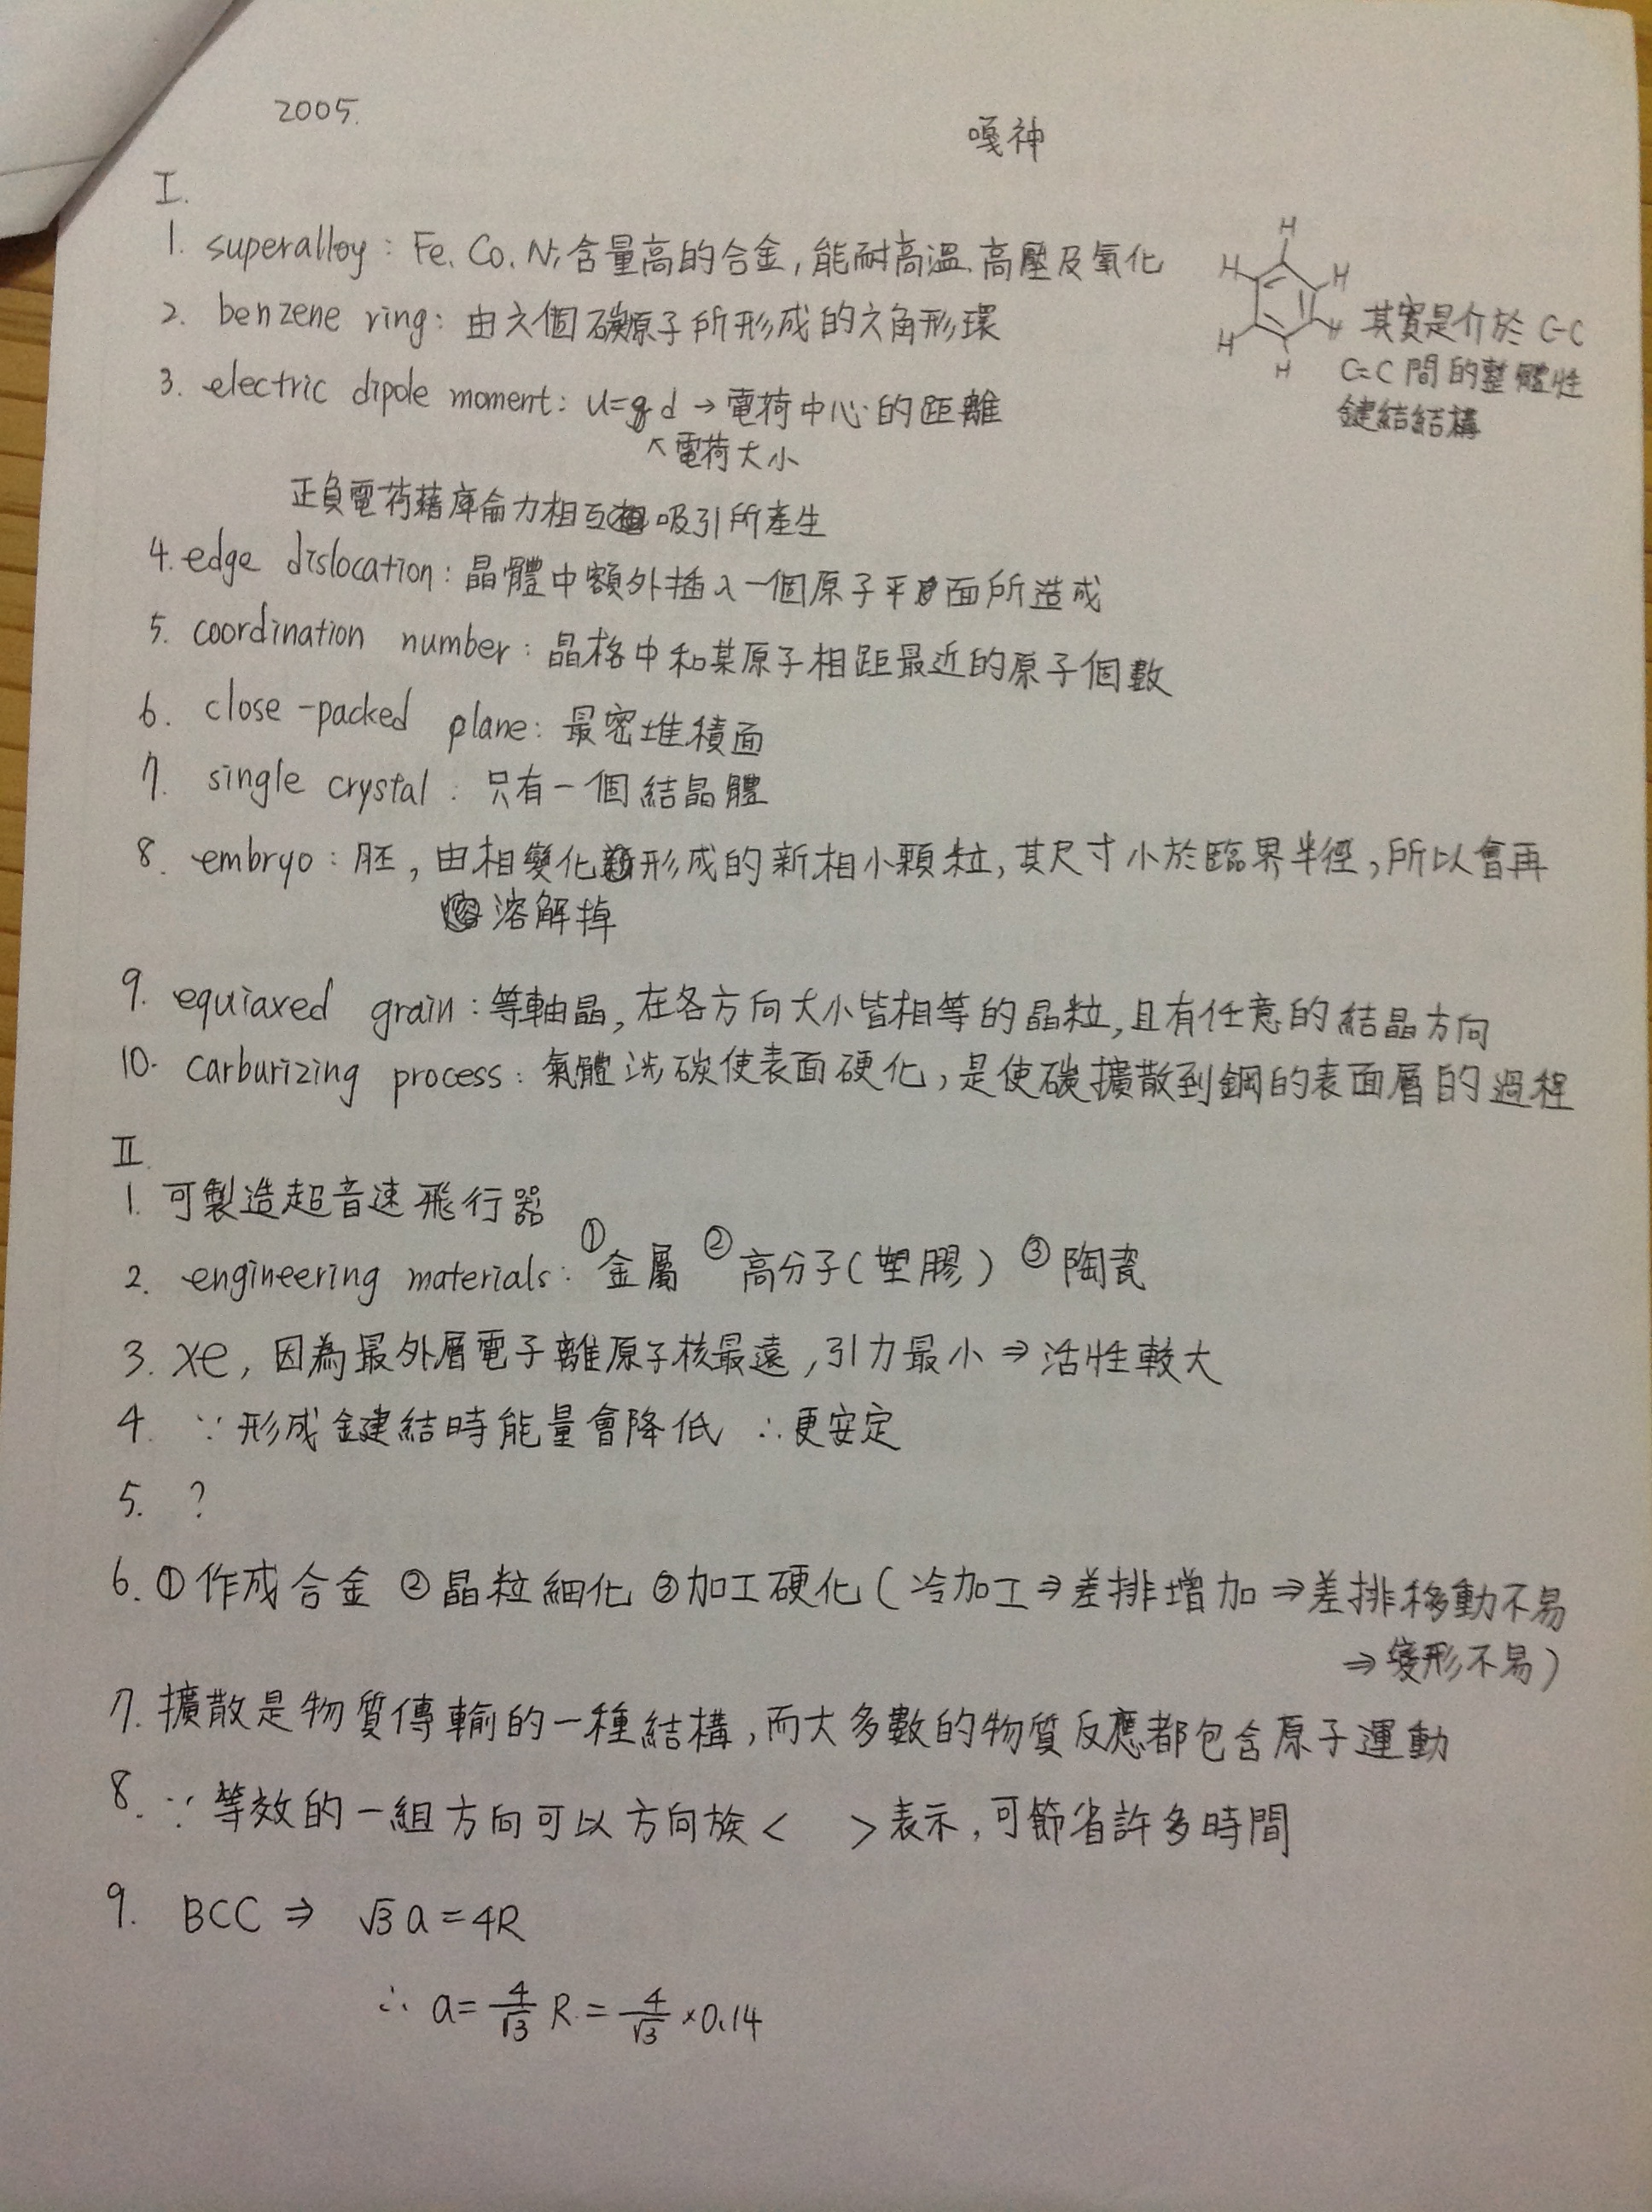 2005.
嘎神
I.
1. superalloy : Fe. Co. Ni 含量高的合金, 能耐高溫、高壓及氧化
2. benzene ring: 由六個碳原子所形成的六角形環
H
H H
H H
H
其實是介於 C-C
C=C 間的整體性
鍵結結構
3. electric dipole moment: u=qd → 電荷中心的距離
↖電荷大小
正負電荷藉庫侖力相互吸引所產生
4. edge dislocation: 晶體中額外插入一個原子平面所造成
5. coordination number: 晶格中和某原子相距最近的原子個數
6. close-packed plane: 最密堆積面
7. single crystal: 只有一個結晶體
8. embryo: 胚, 由相變化形成的新相小顆粒, 其尺寸小於臨界半徑, 所以會再
溶解掉
9. equiaxed grain: 等軸晶, 在各方向大小皆相等的晶粒, 且有任意的結晶方向
10. carburizing process: 氣體涉碳使表面硬化, 是使碳擴散到鋼的表面層的過程
II.
1. 可製造超音速飛行器
2. engineering materials: ①金屬 ②高分子(塑膠) ③陶瓷
3. Xe, 因為最外層電子離原子核最遠, 引力最小 ⇒ 活性較大
4. ∵形成鍵結時能量會降低 ∴更安定
5. ?
6. ①作成合金 ②晶粒細化 ③加工硬化 (冷加工⇒差排增加⇒差排移動不易
⇒變形不易)
7. 擴散是物質傳輸的一種結構, 而大多數的物質反應都包含原子運動
8. ∵等效的一組方向可以方向族< >表示, 可節省許多時間
9. BCC ⇒ √3 a = 4R
∴ a = 4/√3 R = 4/√3 × 0.14